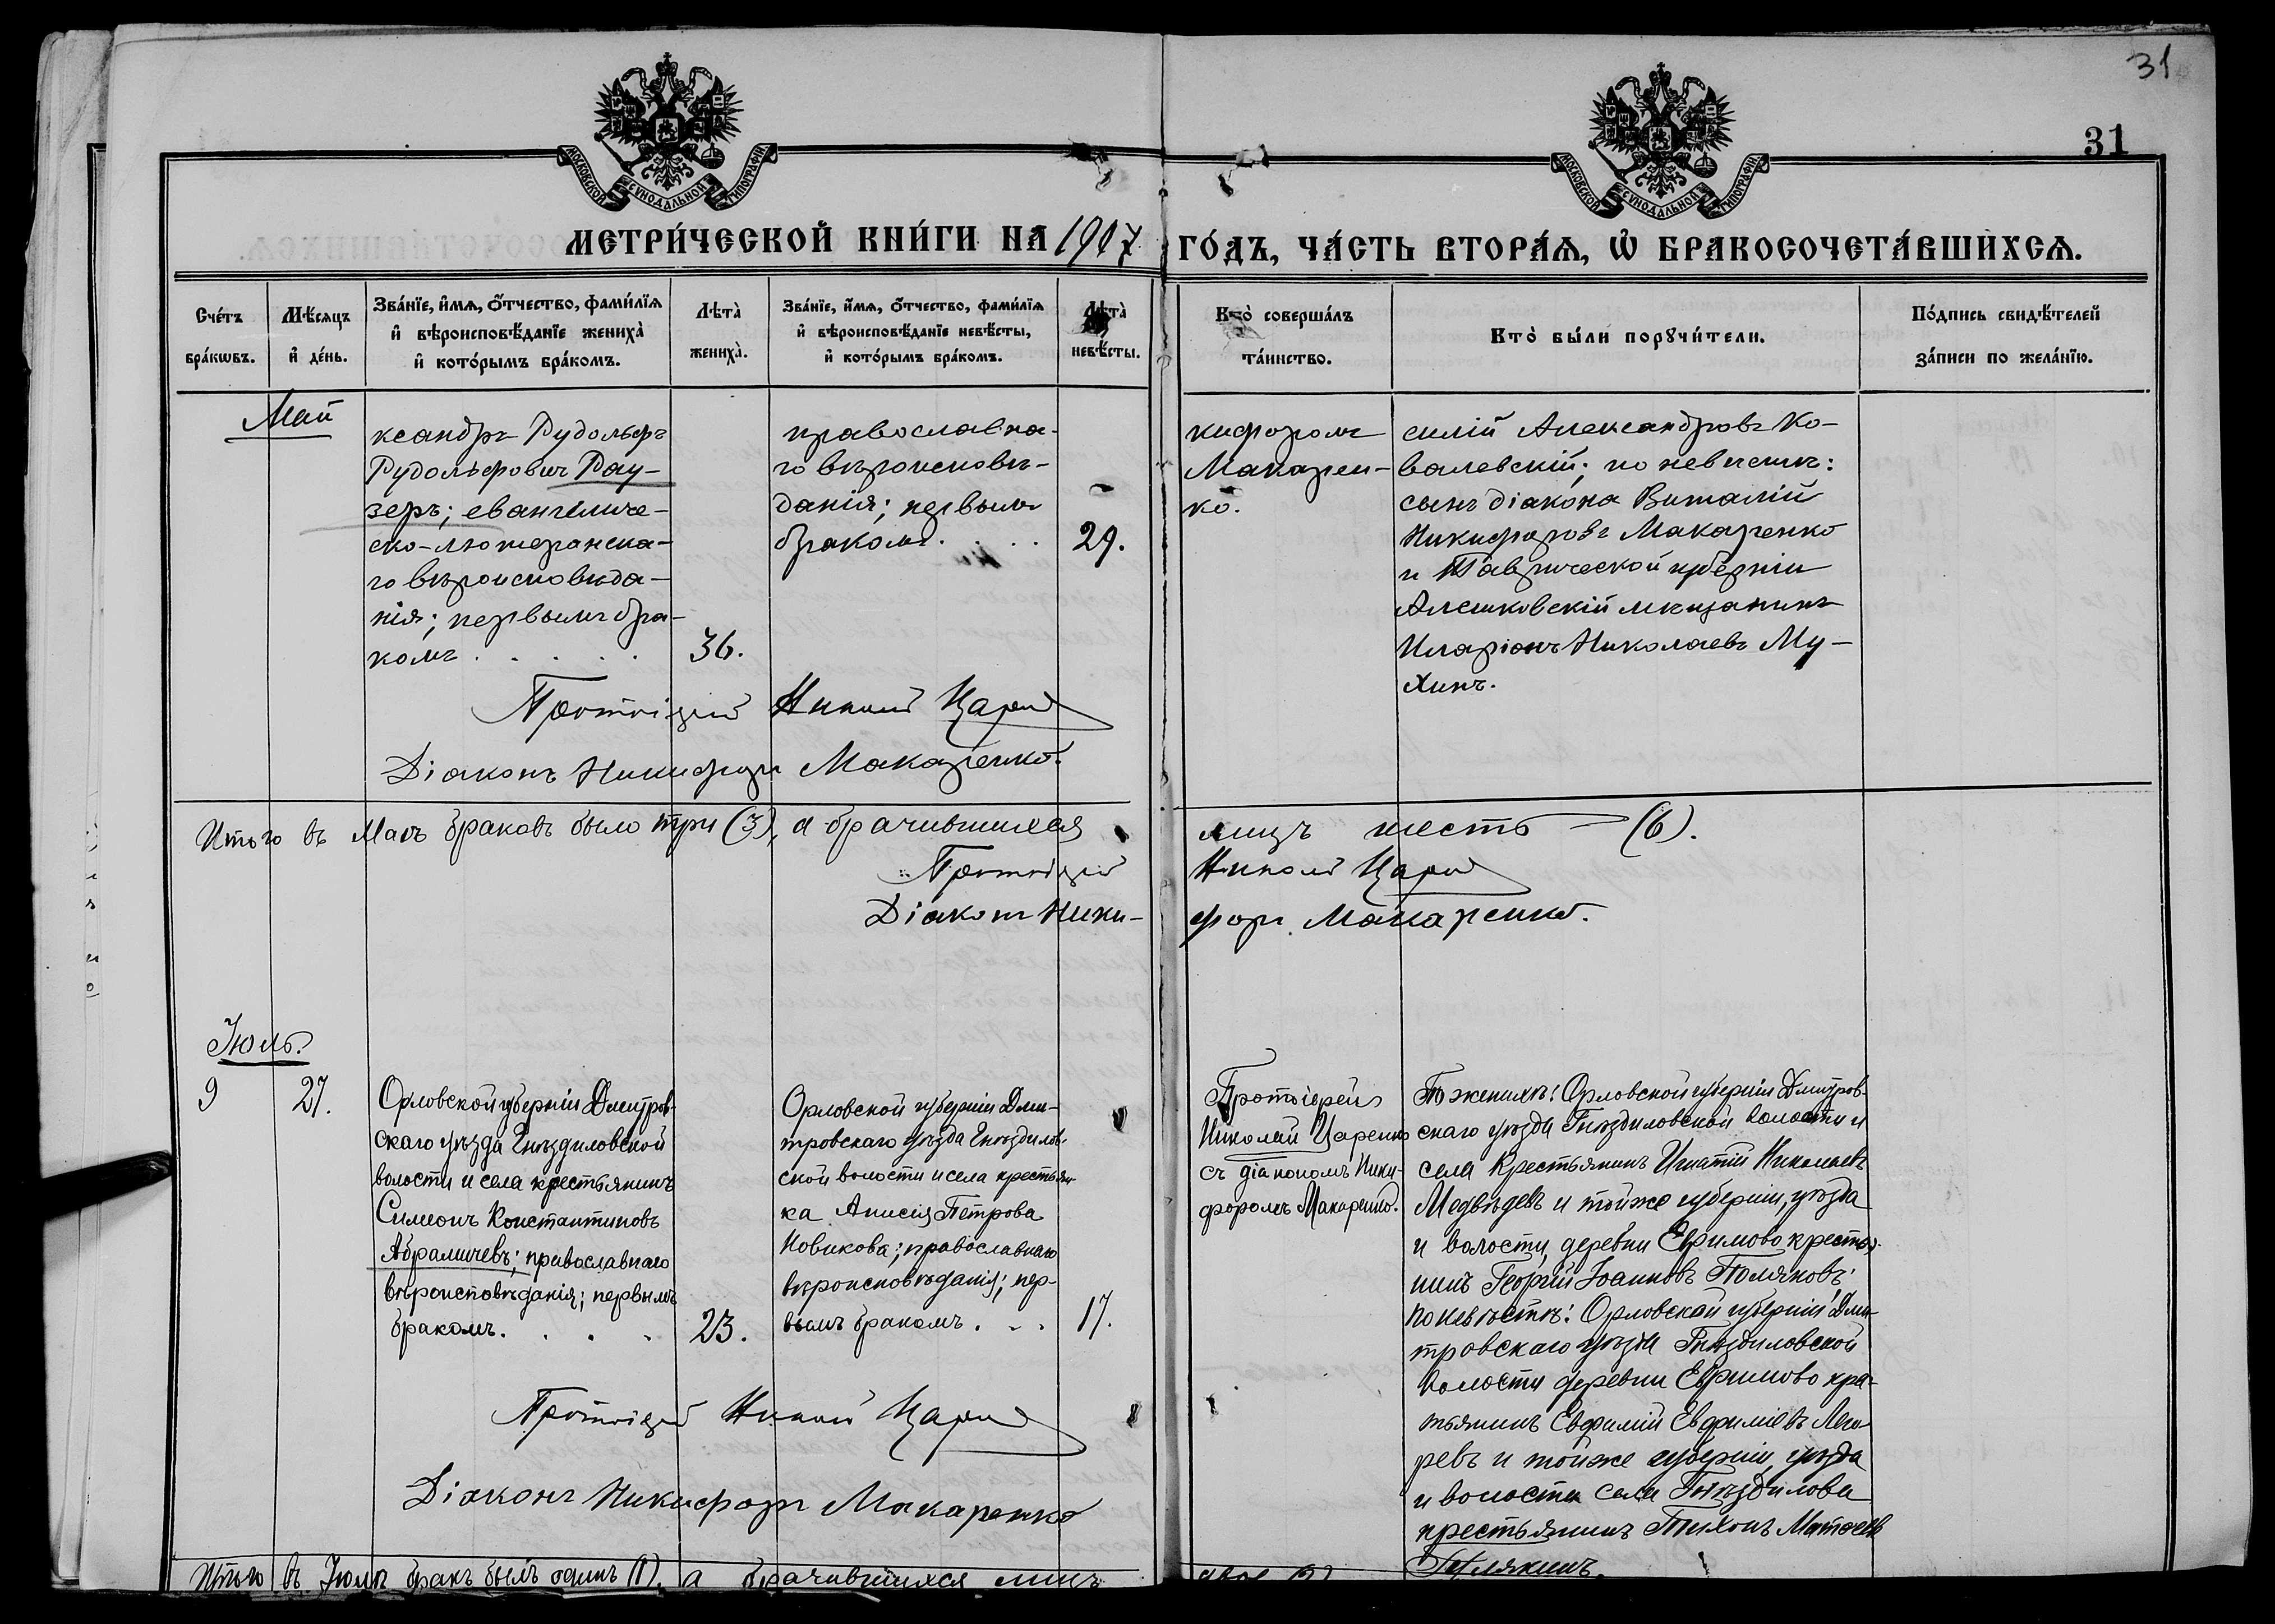 31
31
МОСКОВСКОЙ СѴНОДАЛЬНОЙ ТИПОГРАФІИ
МОСКОВСКОЙ СѴНОДАЛЬНОЙ ТИПОГРАФІИ
МЕТРИ́ЧЕСКОЙ КНИ́ГИ НА 1907 ГО́ДЪ, ЧА́СТЬ ВТОРА́Я, Ѡ҆ БРАКОСОЧЕТА́ВШИХСЯ.
Сче́тъ
бра́кωвъ.
Мѣ́сяцъ
и҆ де́нь.
Зва́нїе, и҆́мя, ѻ҆́тчество, фами́лїя
и҆ вѣроисповѣ́данїе жениха̀
и҆ кото́рымъ бра́комъ.
Лѣта̀
жениха̀.
Зва́нїе, и҆́мя, ѻ҆́тчество, фами́лїя
и҆ вѣроисповѣ́данїе невѣ́сты,
и҆ кото́рымъ бра́комъ.
Лѣта̀
невѣ́сты.
Кто̀ соверша́лъ
та́инство.
Кто̀ бы́ли порꙋчи́тели.
По́дпись свидѣ́телей
за́писи по жела́нїю.
Май
ксандръ Рудольфъ
Рудольфовичъ Рау-
зеръ; евангеличе-
ско-лютеранска-
го вѣроисповѣда-
нія; первымъ бра-
комъ . . . . . 36.
православна-
го вѣроисповѣ-
данія; первымъ
бракомъ. . . . 29.
кифоромъ
Макарен-
ко.
силій Александровъ Ко-
валевскій; по невѣстѣ:
сынъ діакона Виталій
Никифоровъ Макаренко
и Таврической губерніи
Алешковскій мѣщанинъ
Иларіонъ Николаевъ Му-
хинъ.
Протоіерей Николай Царен
Діаконъ Никифоръ Макаренко.
Итого въ Маѣ браковъ было три (3), а брачившихся лицъ шесть — (6).
Протоіерей Николай Царен
Діаконъ Ники-форъ Макаренко.
Іюль.
9 27.
Орловской губерніи Дмитров-
скаго уѣзда Гнѣздиловской
волости и села крестьянинъ
Симеонъ Константиновъ
Абрамичевъ; православнаго
вѣроисповѣданія; первымъ
бракомъ. . . . 23.
Орловской губерніи Дми-
тровскаго уѣзда Гнѣздилов-
ской волости и села крестьян-
ка Анисія Петрова
Новикова; православнаго
вѣроисповѣданія; пер-
вымъ бракомъ . . . 17.
Протоіерей
Николай Царенко
съ діакономъ Ники-
форомъ Макаренко.
По женихѣ: Орловской губерніи Дмитров-
скаго уѣзда Гнѣздиловской волости и
села крестьянинъ Игнатій Николаевъ
Медвѣдевъ и тойже губерніи, уѣзда
и волости, деревни Ефимово крестья-
нинъ Георгій Іоанновъ Поляковъ;
по невѣстѣ: Орловской губерніи Дми-
тровскаго уѣзда Гнѣздиловской
волости деревни Ефимово кре-
тьянинъ Евфимій Евфиміевъ
ревъ и тойже губерніи, уѣзда
и волости села Гнѣздилова
крестьянинъ Тихонъ
Протоіерей Николай Царен
Діаконъ Никифоръ Макаренко
Итого въ Іюлѣ бракъ былъ одинъ (1), а брачившихся лицъ двое (2)